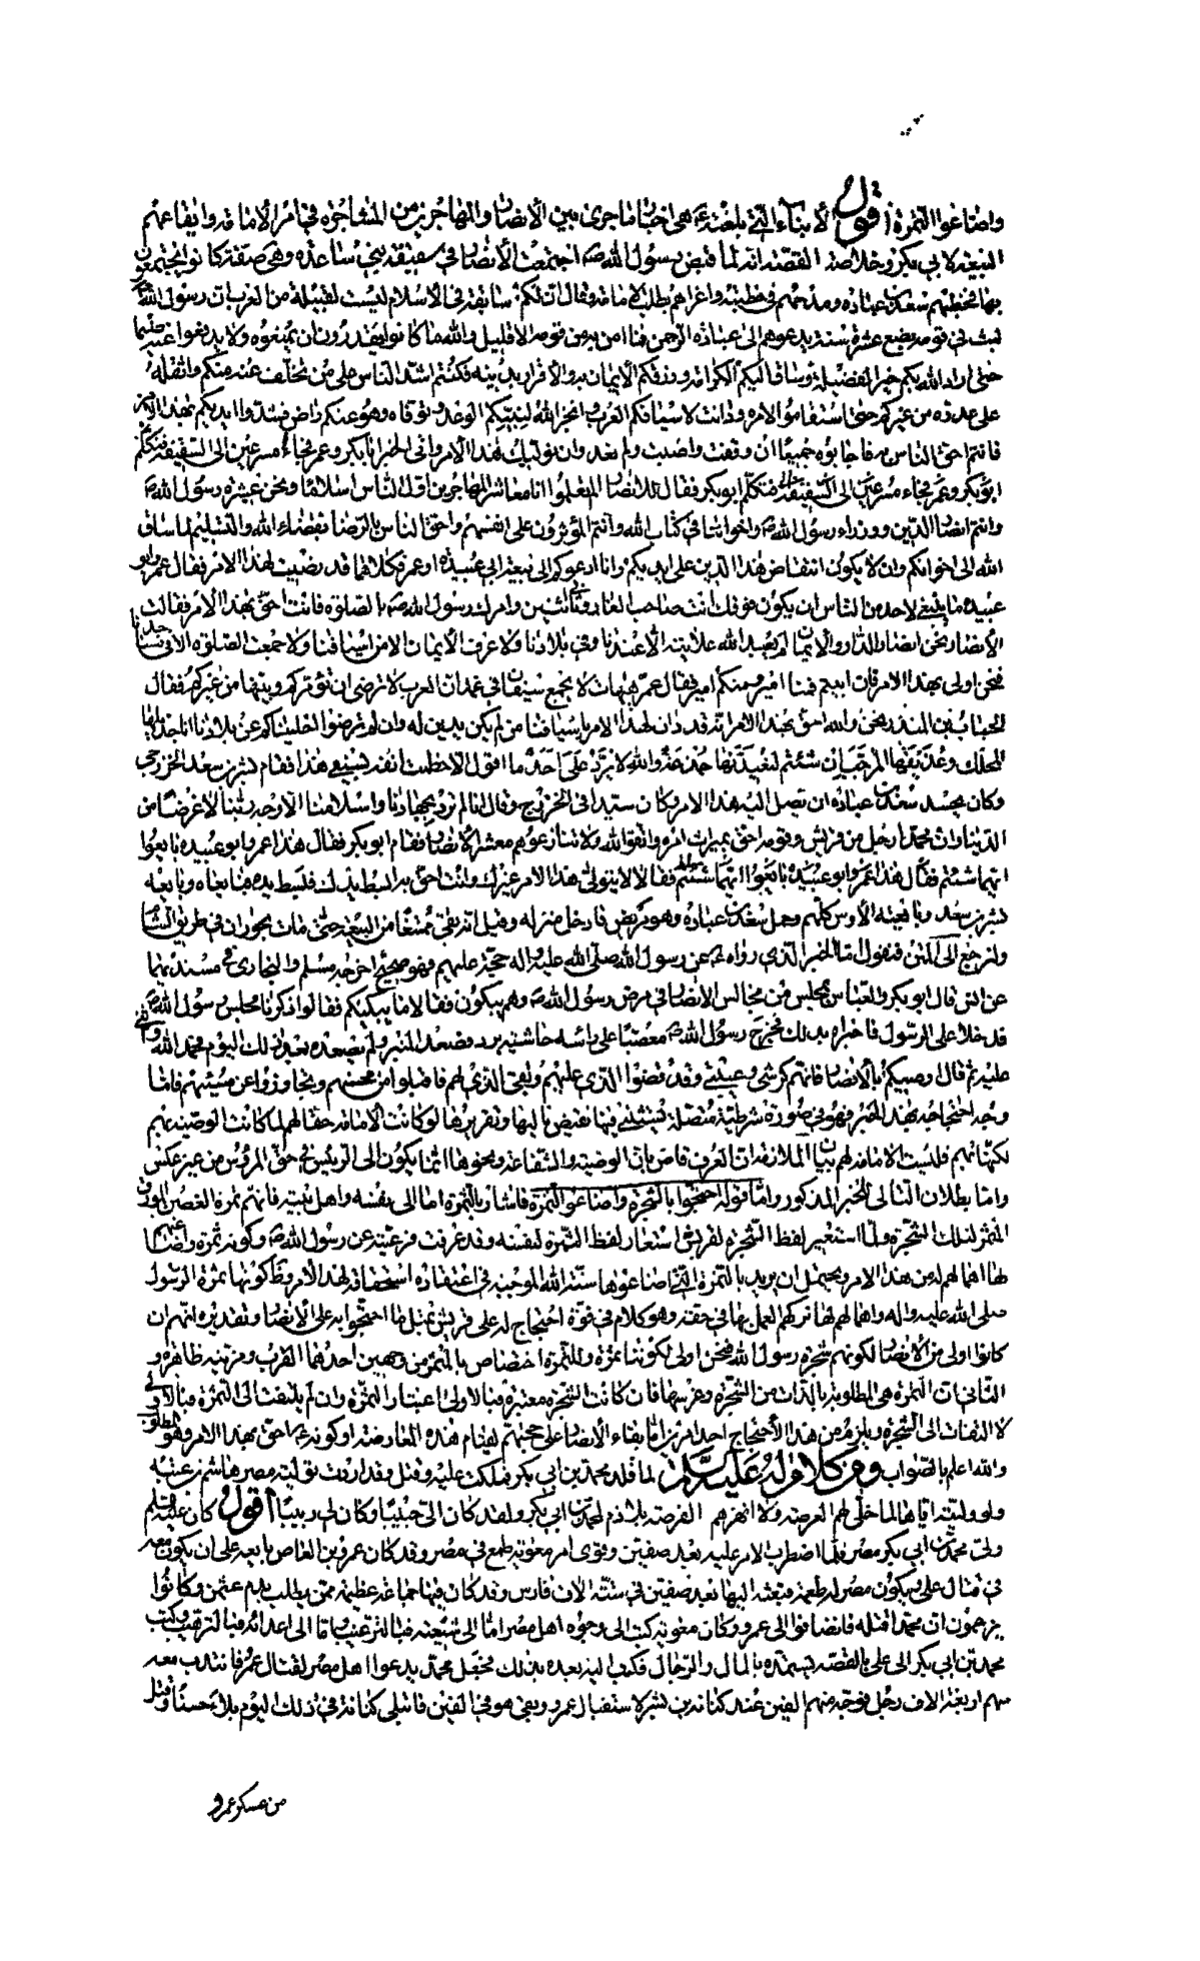 واضاعوا الثمرة اقول الأنباء التي بلغته ع هى اخبار ما جرى بين الأنصار والمهاجرين من المشاجرة في امر الامامة وايقاعهم
البيعة لابي بكر وخلاصة القصة انه لما قبض رسول الله ص اجتمعت الأنصار في سقيفة بني ساعدة وهى صفة كانوا يجتمعون
بها فخطبهم سعد بن عبادة ومدحهم في خطبته واغراهم بطلب الامامة وقال ان لكم سابقة في الاسلام ليست لقبيلة من العرب ان رسول الله
لبث في قومه بضع عشرة سنة يدعوهم الى عبادة الرحمن فما امن به من قومه الا قليل والله ما كانوا يقدرون ان يمنعوه ولا يدفعوا عنه ضيما
حتى اراد الله بكم خير الفضيلة وساق اليكم الكرامة ورزقكم الأيمان به والاقرار بدينه فكنتم اشد الناس على من تخلف عنه منكم واثقله
على عدوه من غيركم حتى استقاموا لأمره ودانت لاسيافكم العرب وانجز الله لنبيكم الوعد وتوفاه وهو عنكم راض فشدوا ايديكم بهذا الامر
فانتم احق الناس به فاجابوه جميعا ان وفقت واصبت ولم نعد وان نوليك هذا الأمر واتى الخبر ابا بكر وعمر فجاءا مسرعين الى السقيفة فتكلم
ابو بكر وعمر فجاء مسرعين الى السقيفة فتكلم ابو بكر فقال للانصار الم تعلموا انا معاشر المهاجرين اول الناس اسلاما ونحن عشيرة رسول الله ص
وانتم انصار الدين ووزراء رسول الله ص واخواننا في كتاب الله وانتم المؤثرون على انفسهم واحق الناس بالرضا بقضاء الله والتسليم لما ساق
الله الى اخوانكم وان لا يكون انتقاض هذا الدين على ايديكم وانا ادعوكم الى بيعة ابي عبيدة او عمر فكلاهما قد رضيت لهذا الامر فقال عمر وابو
عبيدة ما ينبغي لاحد من الناس ان يكون فوقك انت صاحب الغار وثاني اثنين وامرك رسول الله ص بالصلوة فانت احق بهذا الأمر فقالت
الأنصار نحن انصار الدار والايمان لم يعبد الله علانية الا عندنا وفي بلادنا ولا عرف الأيمان الا من اسيافنا ولا جمعت الصلوة الا في مساجدنا
فنحن اولى بهذا الامر فان ابيتم فمنا امير ومنكم امير فقال عمر هيهات لا يجمع سيفان في غمد ان العرب لا ترضى ان تؤمركم ونبيها من غيركم فقال
الحباب بن المنذر نحن والله احق بهذا الامر انه قد دان لهذا الامر باسيافنا من لم يكن يدين له وان لم ترضوا اجليناكم عن بلادنا انا جذيلها
المحكك وعذيقها المرجب ان شئتم لنعيدنها جذعة والله لا يرد على احد ما اقول الا حطمت انفه بسيفي هذا فقام بشر بن سعد الخزرجي
وكان يحسد سعد بن عبادة ان تصل اليه هذا الامر وكان سيدا في الخزرج وقال انا لم نرد بجهادنا واسلامنا الا وجه ربنا لا غرضا من
الدنيا وان محمدا رجل من قريش وقومه احق بميراث امره واتقوا الله ولا تنازعوهم معشر الأنصار فقام ابو بكر فقال هذا عمر وابو عبيدة بايعوا
ايهما شئتم فقال هذا عمر وابو عبيدة بايعوا ايهما شئتم فقالا لا يتولى هذا الامر غيرك وانت احق به ابسط يدك فبسط يده فبايعاه وبايعه
بشر بن سعد وبايعته الأوس كلهم وحمل سعد بن عبادة وهو مريض فادخل منزله وقيل انه بقي ممتنعا من البيعة حتى مات بحوران في طريق الشام
ولنرجع الى المتن فنقول اما الخبر الذي رواه ع عن رسول الله صلى الله عليه واله حجة عليهم فهو صحيح اخرجه مسلم والبخاري في مسنديهما
عن انس قال ابو بكر والعباس بمجلس من مجالس الانصار في مرض رسول الله ص وهم يبكون فقالا ما يبكيكم فقالوا ذكرنا مجلس رسول الله ص
قد خلا على الرسول فاخبراه بذلك فخرج رسول الله ص معصبا على راسه حاشية برد فصعد المنبر ولم يصعده بعد ذلك اليوم فحمد الله واثنى
عليه ثم قال اوصيكم بالأنصار فانهم كرشي وعيبتي وقد قضوا الذي عليهم وبقي الذي لهم فاقبلوا من محسنهم وتجاوزوا عن مسيئهم فاما
وجه احتجاجه بهذا الخبر فهو في صورة شرطية متصلة يستثنى فيها نقيض تاليها وتقريرها لو كانت الامامة حقا لهم لما كانت الوصية بهم
لكنها بهم فليست الامامة لهم بيان الملازمة ان العرف قاض بان الوصية والشفاعة ونحوها انما يكون الى الرئيس في حق المرؤس من غير عكس
واما بطلان التالى للخبر المذكور واما قوله احتجوا بالشجرة واضاعوا الثمرة فاشار بالثمرة اما الى نفسه واهل بيته فانهم ثمرة الغصن المورق
المثمر لتلك الشجرة ولما استعير لفظ الشجرة لقريش استعار لفظ الثمرة لنفسه وقد عرفت فرعيته عن رسول الله ص وكونه ثمرة واضاعتهم
لها اهمالهم له من هذا الامر ويحتمل ان يريد بالثمرة التي اضاعوها سنة الله الموجبة في اعتقاده استحقاقه لهذا الأمر وظ كونها ثمرة الرسول
صلى الله عليه واله واهمالهم لها تركهم العمل بها في حقه وهو كلام في قوة احتجاج له على قريش بمثل ما احتجوا به على الأنصار وتقديره انهم ان
كانوا اولى من الأنصار لكونهم شجرة رسول الله فنحن اولى لكوننا ثمرة وللثمرة اختصاص بالمثمر من وجهين احدهما القرب ومزيته ظاهرة و
الثاني ان الثمرة هي المطلوبة بالذات من الشجرة وغرسها فان كانت الشجرة معتبرة فبالاولى اعتبار الثمرة وان لم يلتفت الى الثمرة فبالاولى
لا التفات الى الشجرة ويلزم من هذا الأحتجاج احد امرين اما بقاء الأنصار على حجتهم لقيام هذه المعارضة او كونه ع احق بهذا الامر وهو المطلوب
والله اعلم بالصواب ومن كلام له عليه السلام لما قلد محمد بن ابي بكر فملكت عليه وقتل وقد اردت تولية مصر هاشم بن عتبة
ولو وليته اياها لما خلى لهم العرصة ولا انهزهم الفرصة بلا ذم لمحمد بن ابي بكر ولقد كان الى حبيبا وكان لى ربيبا اقول كان عليه السلم
ولى محمد بن ابي بكر مصر فلما اضطرب الامر عليه بعد صفين وقوى امر معوية طمع في مصر وقد كان عمرو بن العاص بايعه على ان يكون معه
في قتال على ويكون مصر له طعمة فبعثه اليها بعد صفين في ستة الاف فارس وقد كان فيها جماعة عظيمة ممن يطلب بدم عثمن وكانوا
يزعمون ان محمدا قتله فانضافوا الى عمرو وكان معوية كتب الى وجوه اهل مصر اما الى شيعته فبالترغيب واما الى اعدائه فبالترهيب وكتب
محمد بن ابي بكر الى على بالقصة يستمده بالمال والرجال فكتب اليه يعده بذلك فجعل محمد يدعوا اهل مصر لقتال عمرو فانتدب معه
منهم اربعة الاف رجل فوجه منهم الفين عند كنانة بن بشر لاستقبال عمرو وبقى هو في الفين فابلى كنانة في ذلك اليوم بلاء حسنا وقتل
من عسكر عمرو